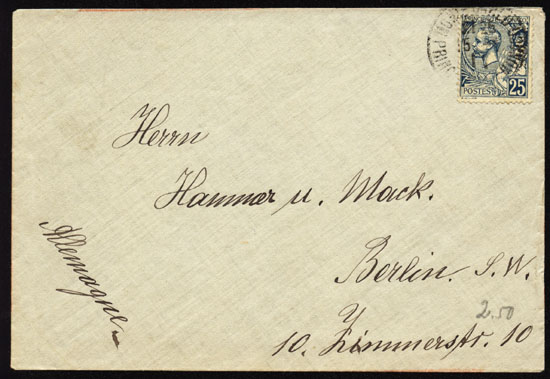 POSTES 25
Herrn
Hammar u. Mack.
Berlin. S.W.
10. Zimmerstr. 10
Allemagne
2.50